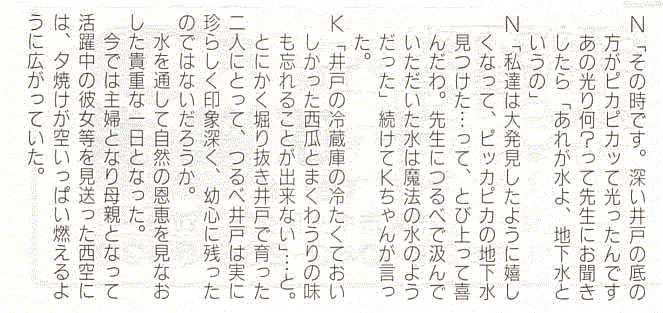 N「その時です。深い井戸の底の
方がピカピカッて光ったんです
あの光り何?って先生にお聞き
したら「あれが水よ、地下水と
いうの」
N「私達は大発見したように嬉し
くなって、ピッカピカの地下水
見つけた…って、とび上って喜
んだわ。先生につるべで汲んで
いただいた水は魔法の水のよう
だった」続けてKちゃんが言っ
た。
K「井戸の冷蔵庫の冷たくておい
しかった西瓜とまくわうりの味
も忘れることが出来ない」…と。
とにかく堀り抜き井戸で育った
二人にとって、つるべ井戸は実に
珍らしく印象深く、幼心に残った
のではないだろうか。
水を通して自然の恩恵を見なお
した貴重な一日となった。
今では主婦となり母親となって
活躍中の彼女等を見送った西空に
は、夕焼けが空いっぱい燃えるよ
うに広がっていた。